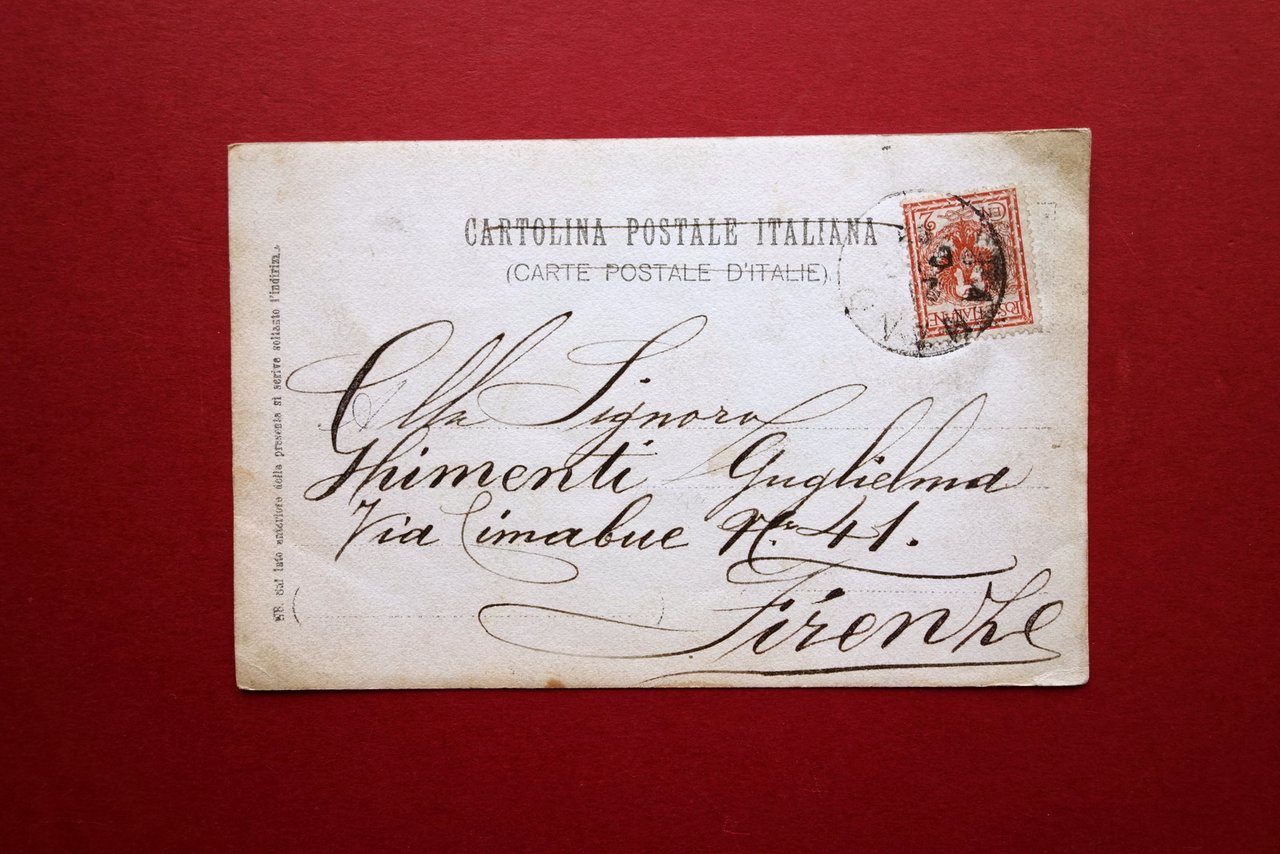 CARTOLINA POSTALE ITALIANA
(CARTE POSTALE D'ITALIE)
NB. Sul lato anteriore della presente si scrive soltanto l'indirizzo.
2
POSTE ITALIANE
Alla Signora
Ghimenti Guglielma
Via Cimabue No. 41.
Firenze